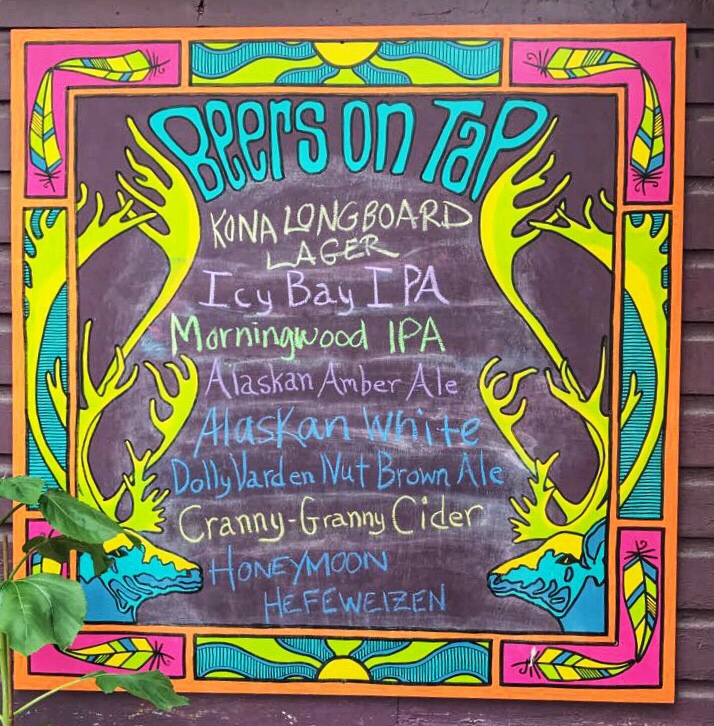 Beers on Tap
KONA LONGBOARD
LAGER
Icy Bay IPA
Morningwood IPA
Alaskan Amber Ale
Alaskan White
Dolly Varden Nut Brown Ale
Cranny-Granny Cider
HONEYMOON
HEFEWEIZEN